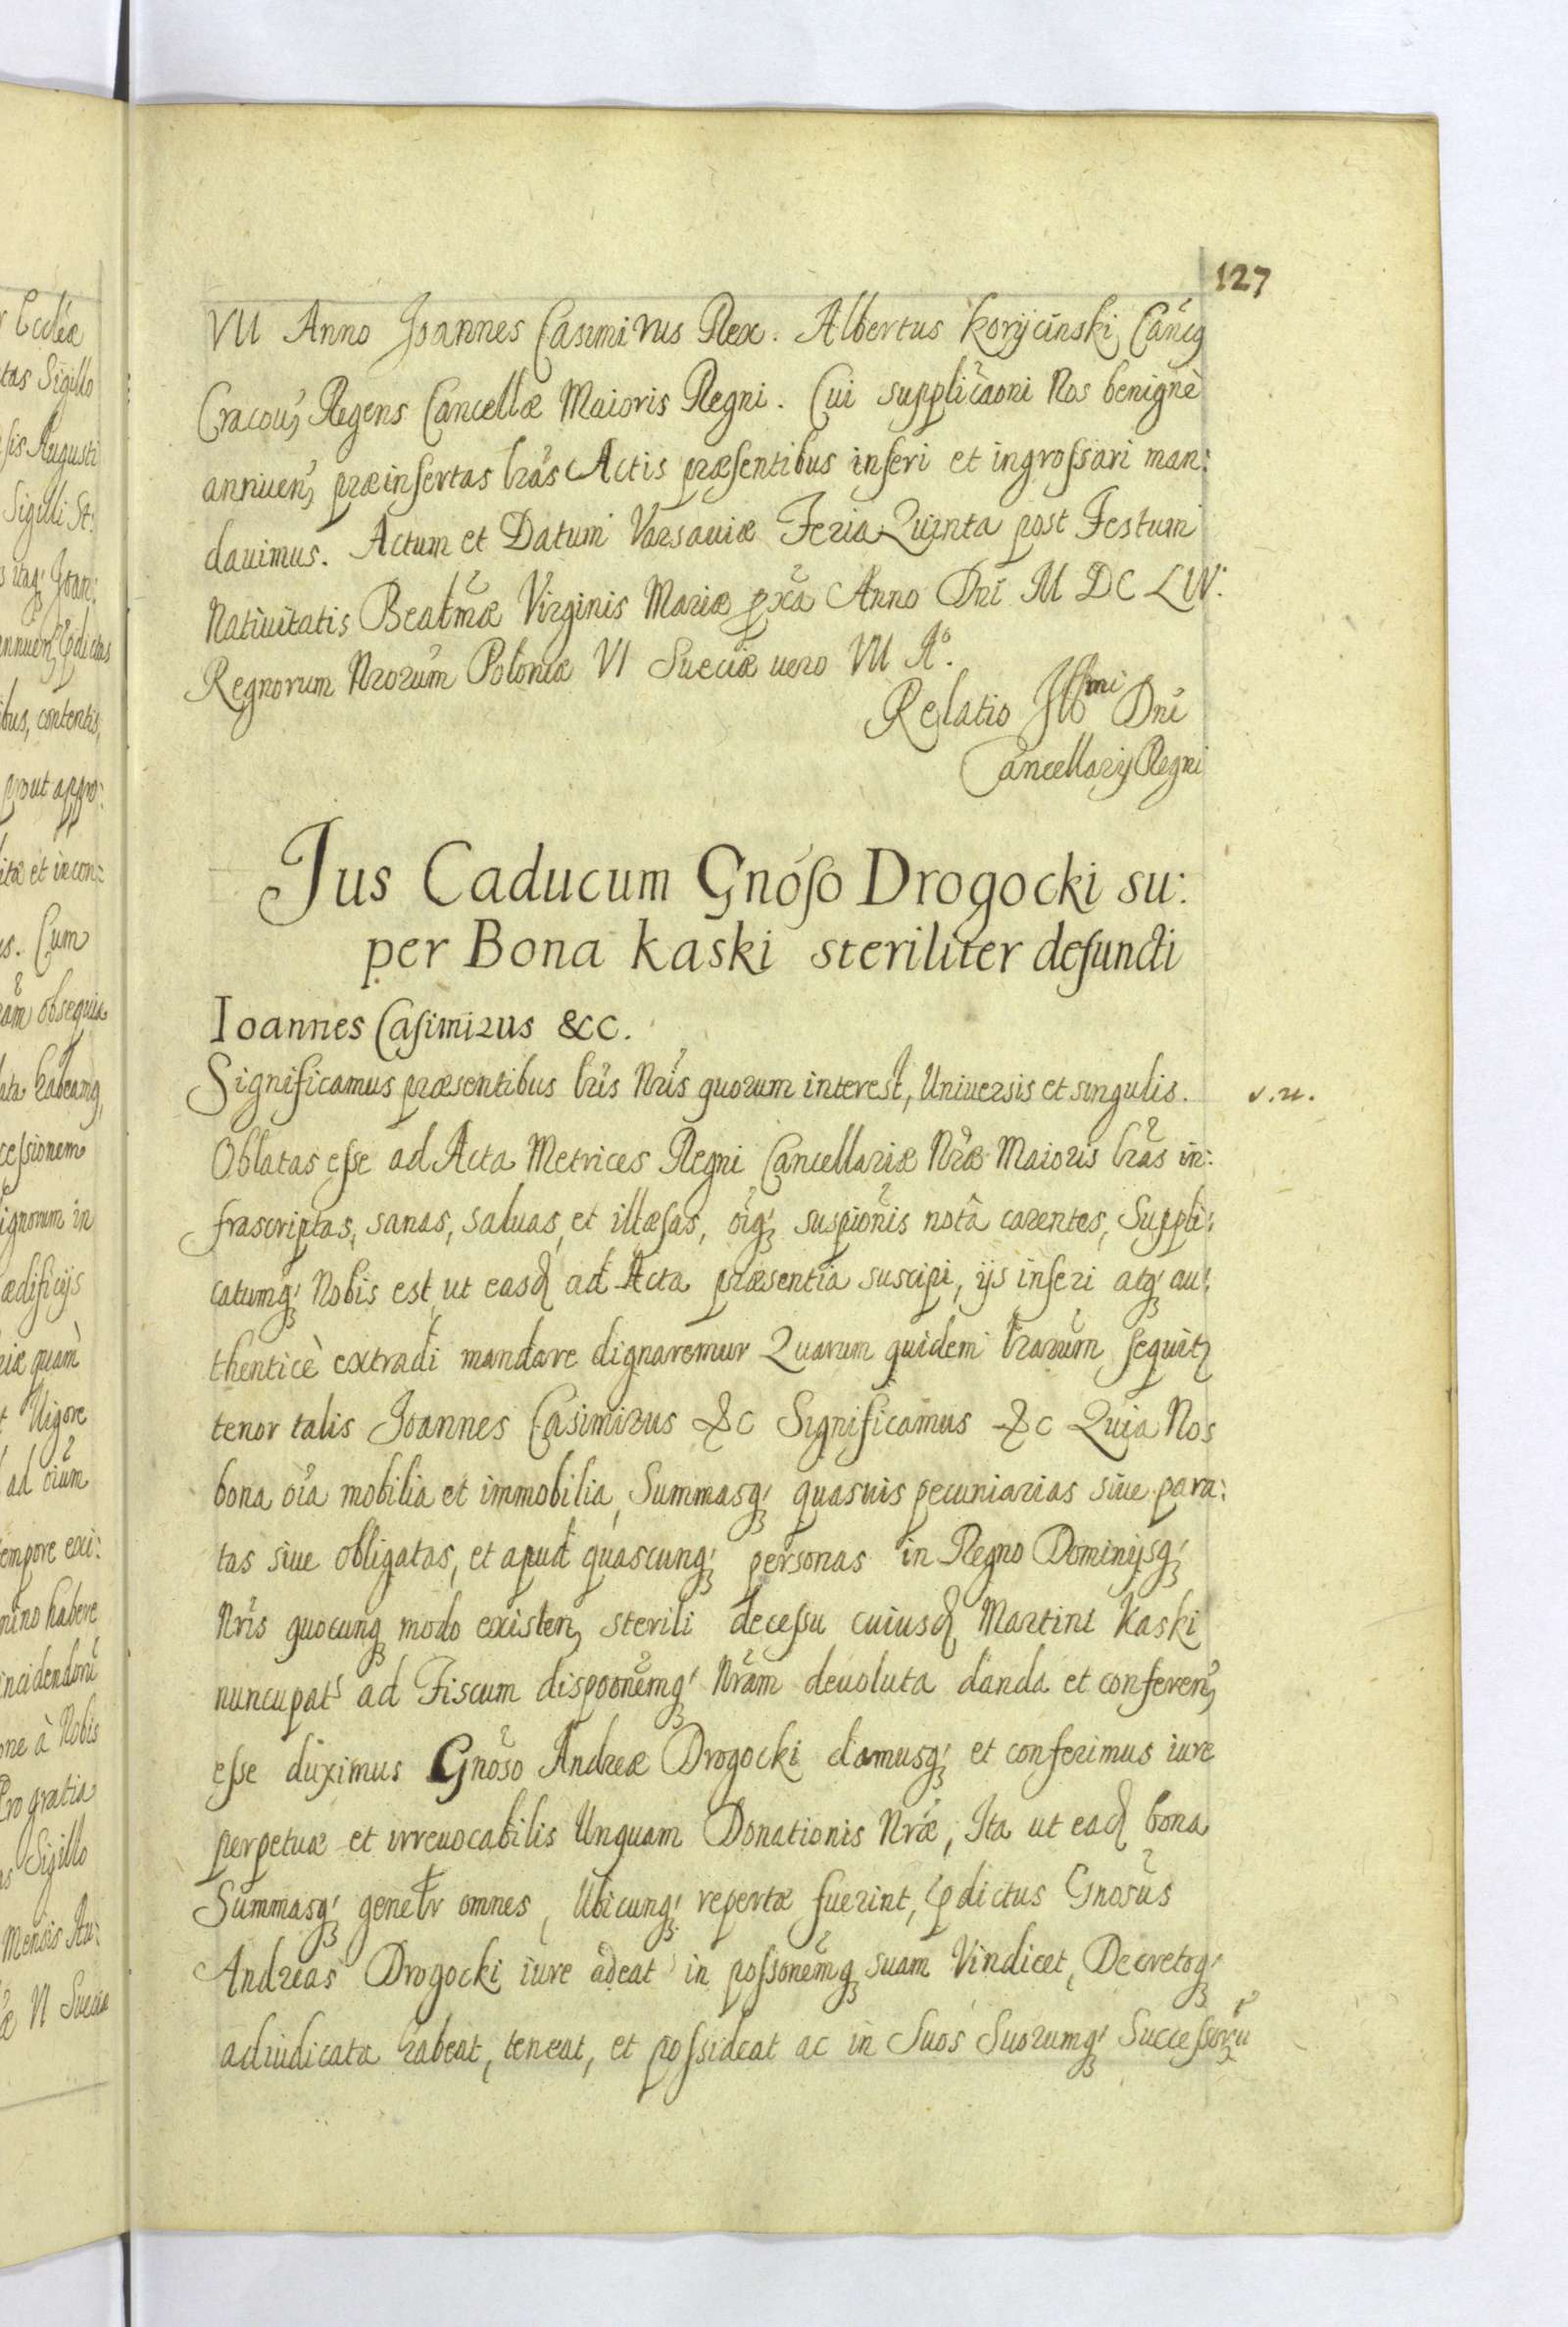 127
VII Anno Joannes Casimirus Rex. Albertus Koryciński Canc̃q
Cracou̾ Regens Cancellæ Maioris Regni. Cui supplicãoni Nos benignè
annuen̾ præinsertas lrãs Actis præsentibus inseri et ingrossari man:
dauimus. Actum et Datum Varsauiæ Feria Quinta post Festum
Natiuitatis Beatmæ̃ Virginis Mariæ pxã Anno Dni M DC LIV.
Regnorum Nrorũm Poloniæ VI Sueciæ uero VII A°.
Relatio Illmi Dni
Cancellarij Regni
Jus Caducum Gnóso Drogocki su:
per Bona Kaski steriliter defuncti
Ioannes Casimirus &c.
Significamus præsentibus lris Nris quorum interest, Uniuersis et singulis.
v.n.
Oblatas esse ad Acta Metrices Regni Cancellariæ Nræ Maioris lrãs in:
frascriptas, sanas, saluas, et illæsas, oiq; suspiõnis notâ carentes, Suppli:
catumq; Nobis est, ut easd ad Acta præsentia suscipi, ijs inseri atq; au:
thenticè extradi mandare dignaremur Quarum quidem lrarũm sequitr
tenor talis Joannes Casimirus &c Significamus &c Quia Nos
bona oia mobilia et immobilia, Summasq; quasuis pecuniarias siue para:
tas siue obligatas, et apud quascunq; personas in Regno Dominijsq;
Nris quocunq modo existen̾ sterili decessu cuiusd Martini Kaski
nuncupats ad Fiscum dispoõnemq; Nrãm deuoluta danda et conferen̾
esse duximus Gnõso Andreæ Drogocki damusq; et conferimus iure
perpetuæ et irreuocabilis Unquam Donationis Nræ, Ita ut ead bona
Summasq; genelr omnes, Ubicunq; repertæ fuerint, pdictus Gnosũs
Andreas Drogocki iure adeat in possonẽmq suam Vindicet, Decretoq;
adiudicata habeat, teneat, et possideat ac in Suos Suorumq; Successorũ